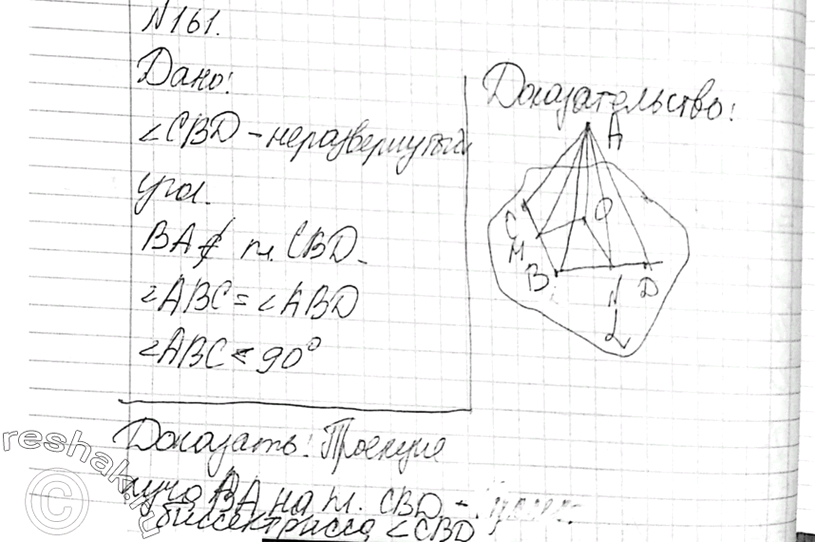 N161.
Дано:
∠CBD - неразвернутый
угол.
BA ⊄ пл. CBD.
∠ABC = ∠ABD
∠ABC < 90°
Доказательство:
A
C
O
M
B
N
D
α
Доказать: Проекция
луча BA на пл. CBD -
биссектрисса ∠CBD
reshak.ru
©